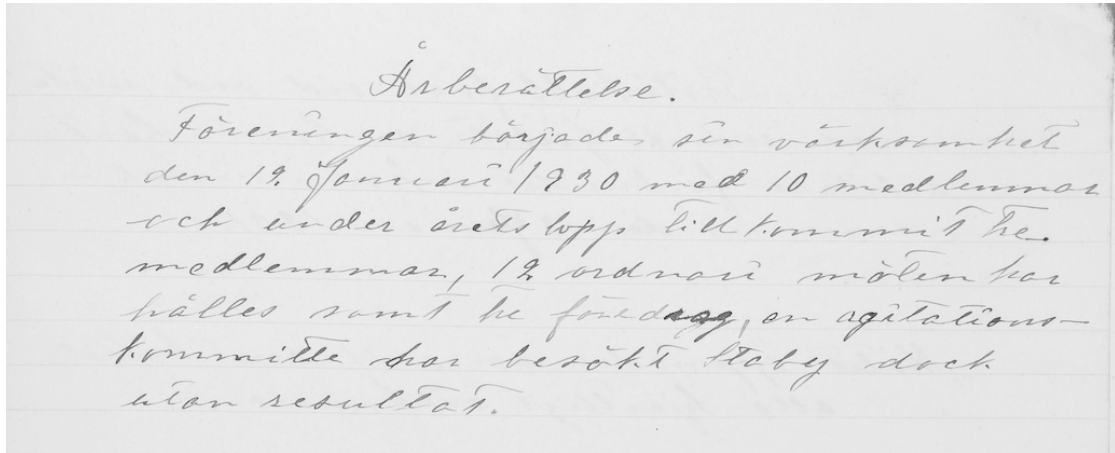 Årberättelse.
Föreningen började sin värksamhet
den 12. Januari 1930 med 10 medlemmar
och under årets lopp tillkommit tre
medlemmar, 12 ordnari möten har
hålles samt tre föredrag, en agitations-
kommitte har besökt Staby dock
utan resultat.